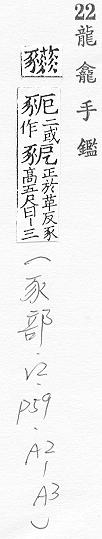 22 龍龕手鑑
二或作
正於革反豕高五尺曰一三
(豕部.v2.p59.A2-A3)